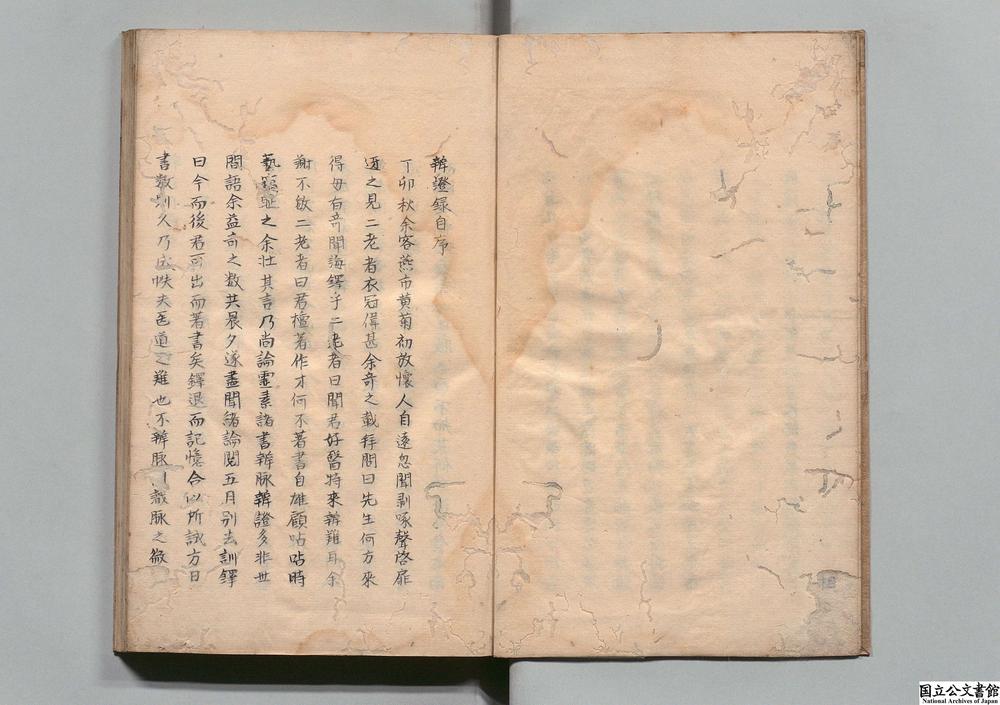 辨證録自序
丁卯秋余客燕市黄菊初放懷人自遠忽聞剥啄聲啓扉
迓之見二老者衣冠偉甚余奇之載拜問曰先生何方來
得毋有奇聞誨鐸乎二老者曰聞君好醫特來辨難耳余
謝不敏二老者曰君擅著作才何不著書自雄顧呫呫時
藝 之余壯其言乃尚論靈素諸書辨脉辨證多非世
間語余益奇之数共晨夕遂盡聞緒論閲五月别去訓鐸
曰今而後君可出而著書矣鐸退而記憶合以所試方日
書数則久乃成帙夫醫道之難也不辨脉 脉之微
国立公文書館
National Archives of Japan